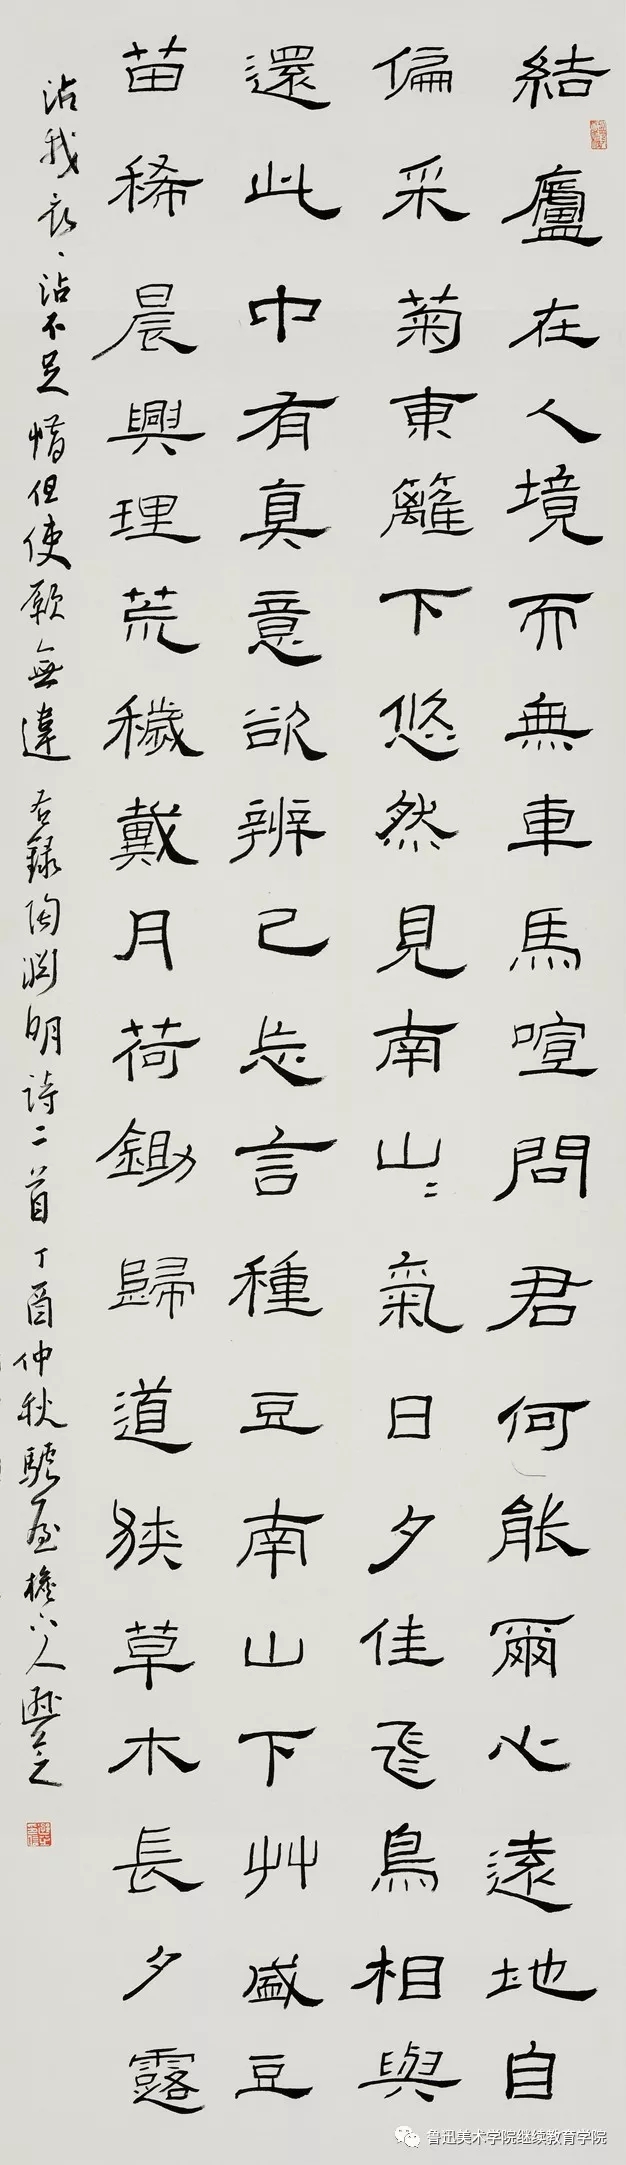 結廬在人境而無車馬喧問君何能爾心遠地自
偏采菊東籬下悠然見南山〻氣日夕佳飛鳥相與
還此中有真意欲辨已忘言種豆南山下艸盛豆
苗稀晨興理荒穢戴月荷鋤歸道狹草木長夕露
沾我衣〻沾不足惜但使願無違 右録陶淵明詩二首 丁酉仲秋
鲁迅美术学院继续教育学院